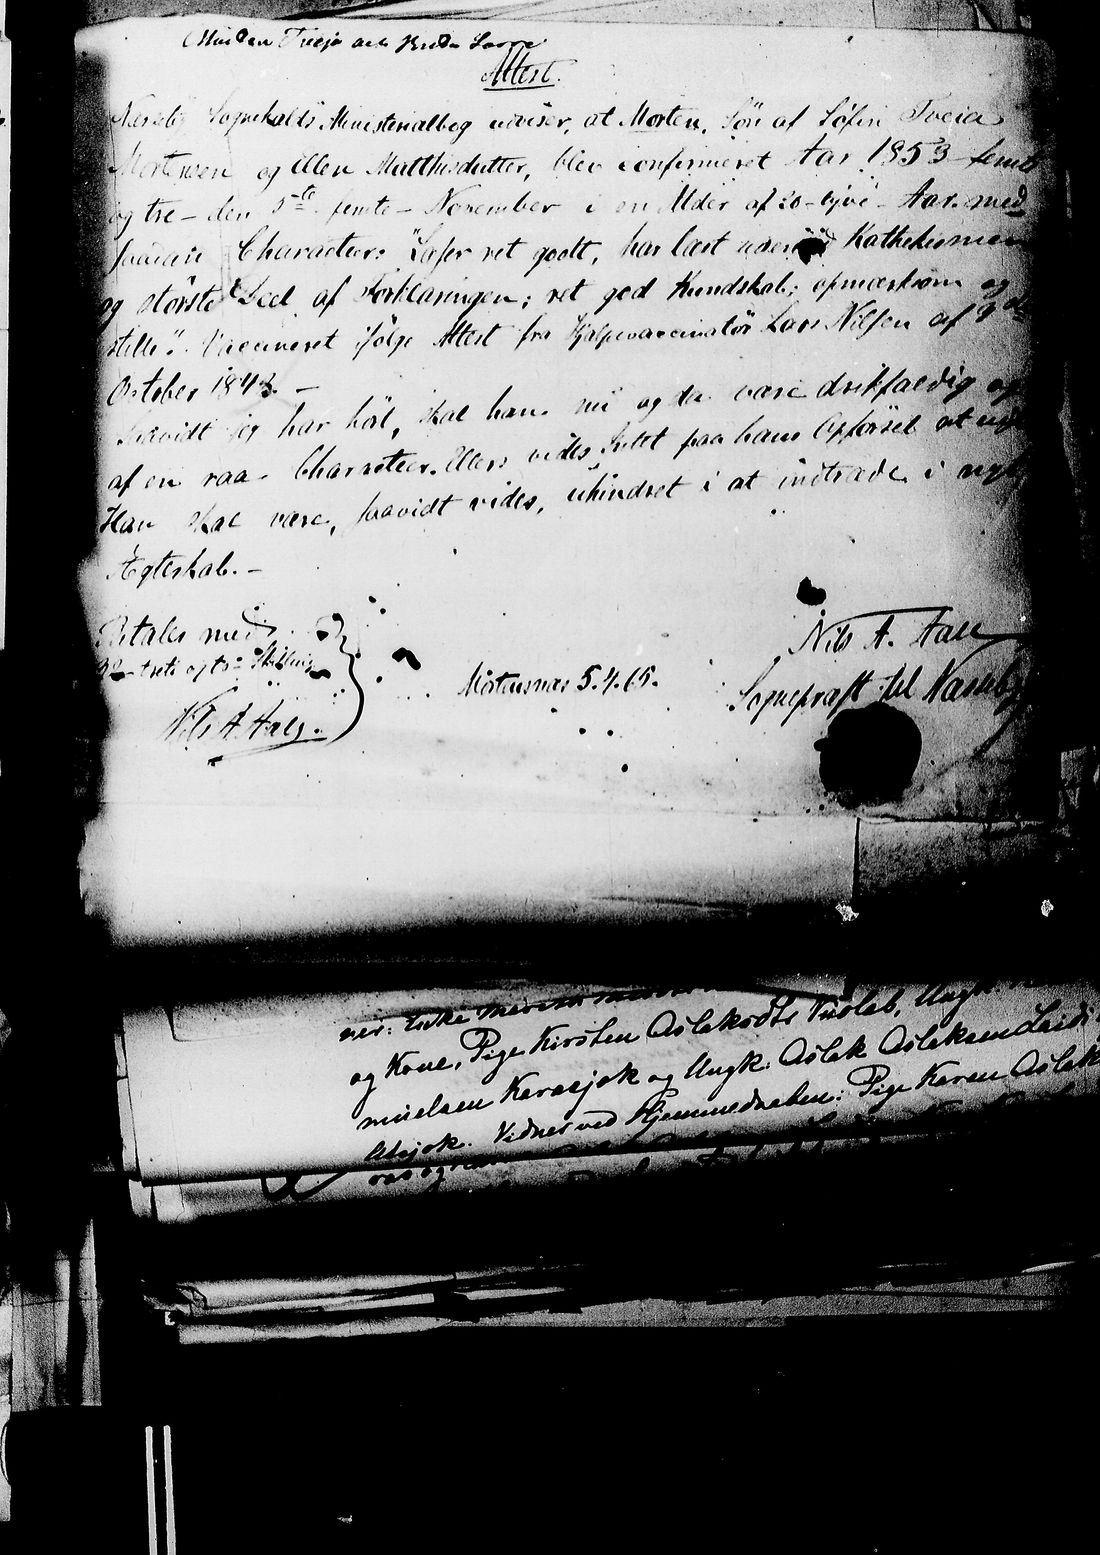 Attest.
Næsseby Sognekalds Ministerialbog udviser, at Morten, Søn af Sofin Tveia
Mortensen og Ellen Matthisdatter, blev confirmeret Aar 1853 femti
og tre - den 5te femte - November i en Alder af 20 - tyve - Aar med
saadan Characteer: "Læser ret godt, har læst udenad Kathekismen
og største Deel af Forklaringen; ret god Kundskab; opmærksom og
stille". Vaccineret ifølge Attest fra Hjælpevaccinatør Lars Nilsen af 9de
October 1843. -
Saavidt jeg har hørt, skal han nu og da være drikfældig og
af en raa Characteer. Ellers vides Intet paa hans Opførsel at
Han skal være, saavidt vides, uhindret i at indtræde i nyt
Ægteskab. -
Betales med
32 - treti og to - Skilling
Nils A. Aall.
Mortensnæs 5.4.65.
Nils A. Aall
Sognepræst til Næsseby
og Kone, Pige Kirsten Aslaksdtr
muelsen Karasjok og Ungk. Aslak Aslaksen
Vidner ved Hjemmedaaben: Pige Karen Aslak